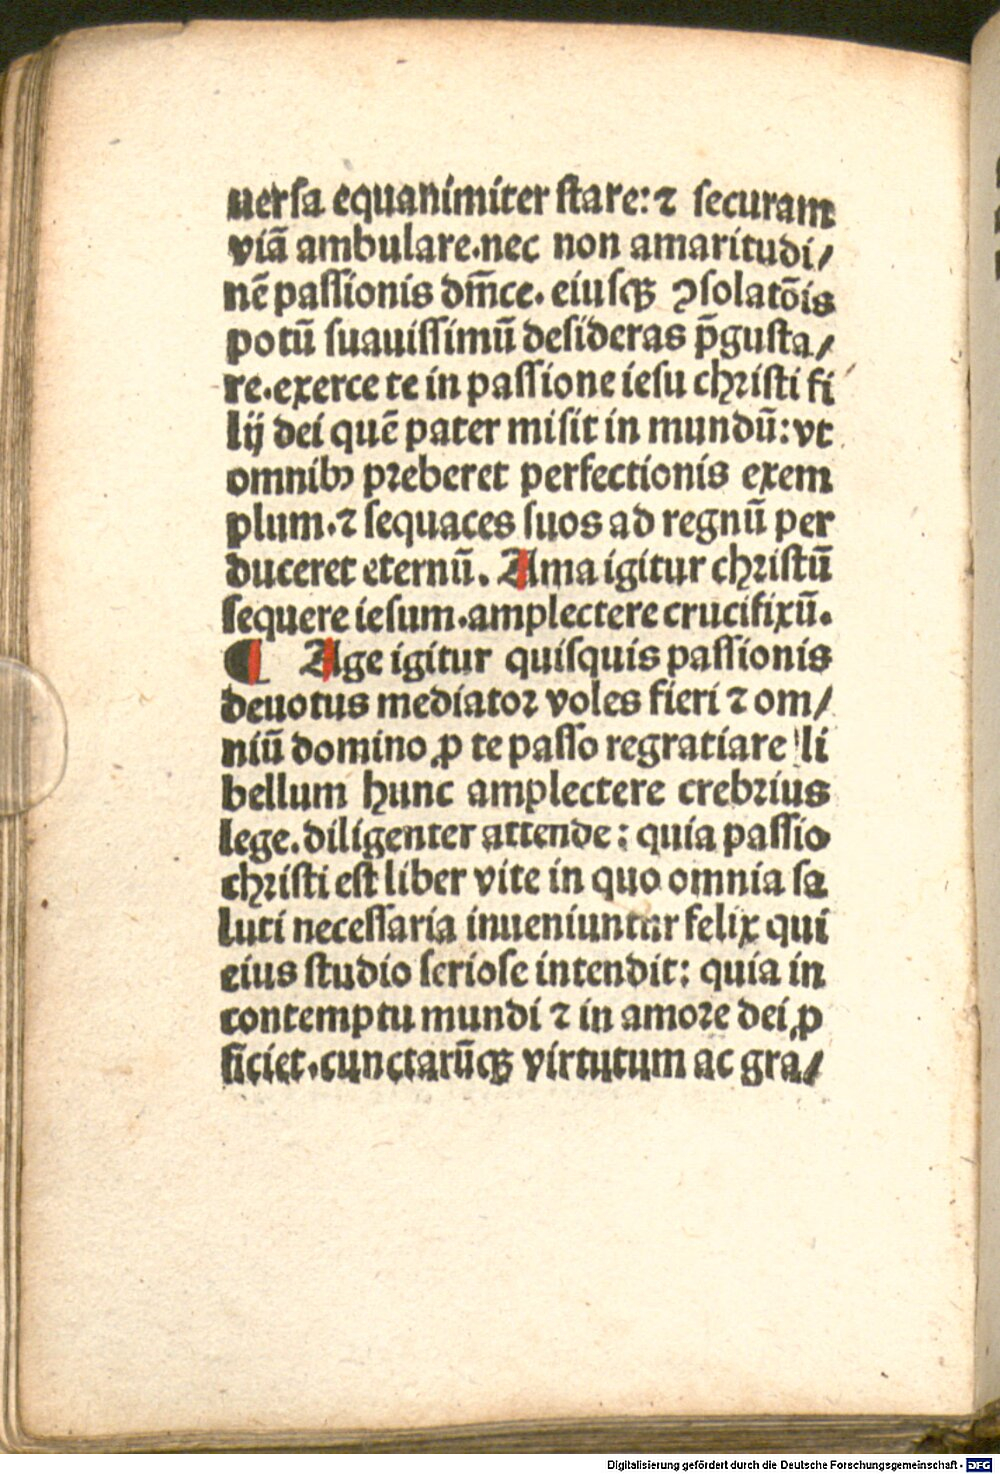 uersa equanimiter stare: ⁊ securam
viā ambulare.nec non amaritudi/
nē passionis dn̄ice. eiusqꝫ ꝯsolatōis
potū suauissimū desideras p̄gusta/
re.exerce te in passione iesu christi fi
lij dei quē pater misit in mundū:vt
omnibꝰ preberet perfectionis exem
plum.⁊ sequaces suos ad regnū per
duceret eternū. Ama igitur christū
sequere iesum.amplectere crucifixū.
¶ Age igitur quisquis passionis
deuotus mediator voles fieri ⁊ om/
niū domino ꝓ te passo regratiare li
bellum hunc amplectere crebrius
lege.diligenter attende: quia passio
christi est liber vite in quo omnia sa
luti necessaria inueniuntur felix qui
eius studio seriose intendit: quia in
contemptu mundi ⁊ in amore dei ꝓ
ficiet.cunctarūqꝫ virtutum ac gra/
Digitalisierung gefördert durch die Deutsche Forschungsgemeinschaft - DFG